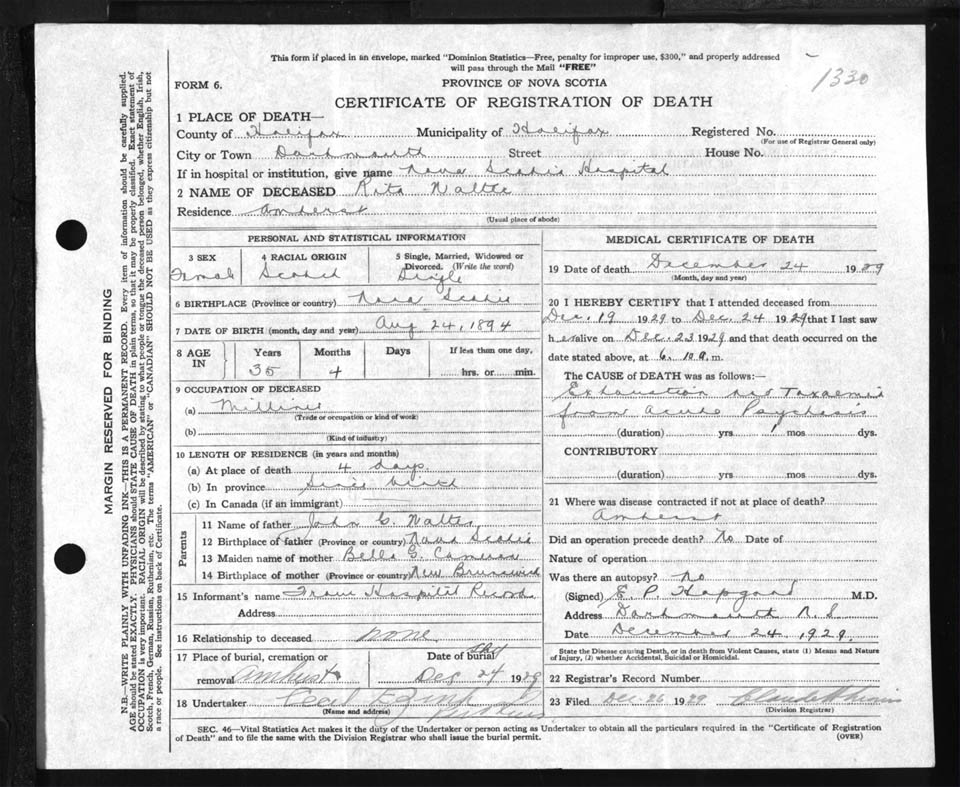 This form if placed in an envelope, marked "Dominion Statistics—Free, penalty for improper use, $300," and properly addressed
will pass through the Mail "FREE"
1330
FORM 6.
PROVINCE OF NOVA SCOTIA
CERTIFICATE OF REGISTRATION OF DEATH
1 PLACE OF DEATH—
County of Halifax Municipality of Halifax Registered No.
(For use of Registrar General only)
City or Town Dartmouth Street House No.
If in hospital or institution, give name Nova Scotia Hospital
2 NAME OF DECEASED Rita
Residence Amherst
(Usual place of abode)
PERSONAL AND STATISTICAL INFORMATION
3 SEX 4 RACIAL ORIGIN 5 Single, Married, Widowed or
Divorced. (Write the word)
Female Scotch Single
6 BIRTHPLACE (Province or country) Nova Scotia
7 DATE OF BIRTH (month, day and year) Aug 24, 1894
8 AGE IN Years Months Days If less than one day,
35 4 hrs. or min.
9 OCCUPATION OF DECEASED
(a) Milliner
(Trade or occupation or kind of work)
(b)
(Kind of industry)
10 LENGTH OF RESIDENCE (in years and months)
(a) At place of death 4 days
(b) In province Since birth
(c) In Canada (if an immigrant)
Parents
11 Name of father John C.
12 Birthplace of father (Province or country) Nova Scotia
13 Maiden name of mother Bella G. Cameron
14 Birthplace of mother (Province or country) New Brunswick
15 Informant's name From Hospital Records
Address
16 Relationship to deceased none
17 Place of burial, cremation or Date of burial
removal Amherst Dec 24 1929
18 Undertaker Cecil
(Name and address)
MEDICAL CERTIFICATE OF DEATH
19 Date of death December 24 1929
(Month, day and year)
20 I HEREBY CERTIFY that I attended deceased from
Dec. 19 1929 to Dec. 24 1929 that I last saw
her alive on Dec. 23 1929 and that death occurred on the
date stated above, at 6.10 a. m.
The CAUSE OF DEATH was as follows:—
Exhaustion and Toxaemia
from acute Psychosis
(duration) yrs 1 mos dys.
CONTRIBUTORY
(duration) yrs mos dys.
21 Where was disease contracted if not at place of death?
Amherst
Did an operation precede death? No Date of
Nature of operation
Was there an autopsy? No
(Signed) E. P. Hapgood M.D.
Address Dartmouth N. S.
Date December 24, 1929.
State the Disease causing Death, or in death from Violent Causes, state (1) Means and Nature
of Injury, (2) whether Accidental, Suicidal or Homicidal.
22 Registrar's Record Number
23 Filed Dec 26 1929
(Division Registrar)
SEC. 46—Vital Statistics Act makes it the duty of the Undertaker or person acting as Undertaker to obtain all the particulars required in the "Certificate of Registration
of Death" and to file the same with the Division Registrar who shall issue the burial permit.
(OVER)
MARGIN RESERVED FOR BINDING
N.B.—WRITE PLAINLY WITH UNFADING INK—THIS IS A PERMANENT RECORD. Every item of information should be carefully supplied.
AGE should be stated EXACTLY. PHYSICIANS should STATE CAUSE OF DEATH in plain terms, so that it may be properly classified. Exact statement of
OCCUPATION is very important. RACIAL ORIGIN will be described by stating to what people or tongue the deceased person belonged, whether English, Irish,
Scotch, French, German, Russian, Ruthenian, etc. The terms "AMERICAN" or "CANADIAN" SHOULD NOT BE USED as they express citizenship but not
a race or people. See instructions on back of Certificate.